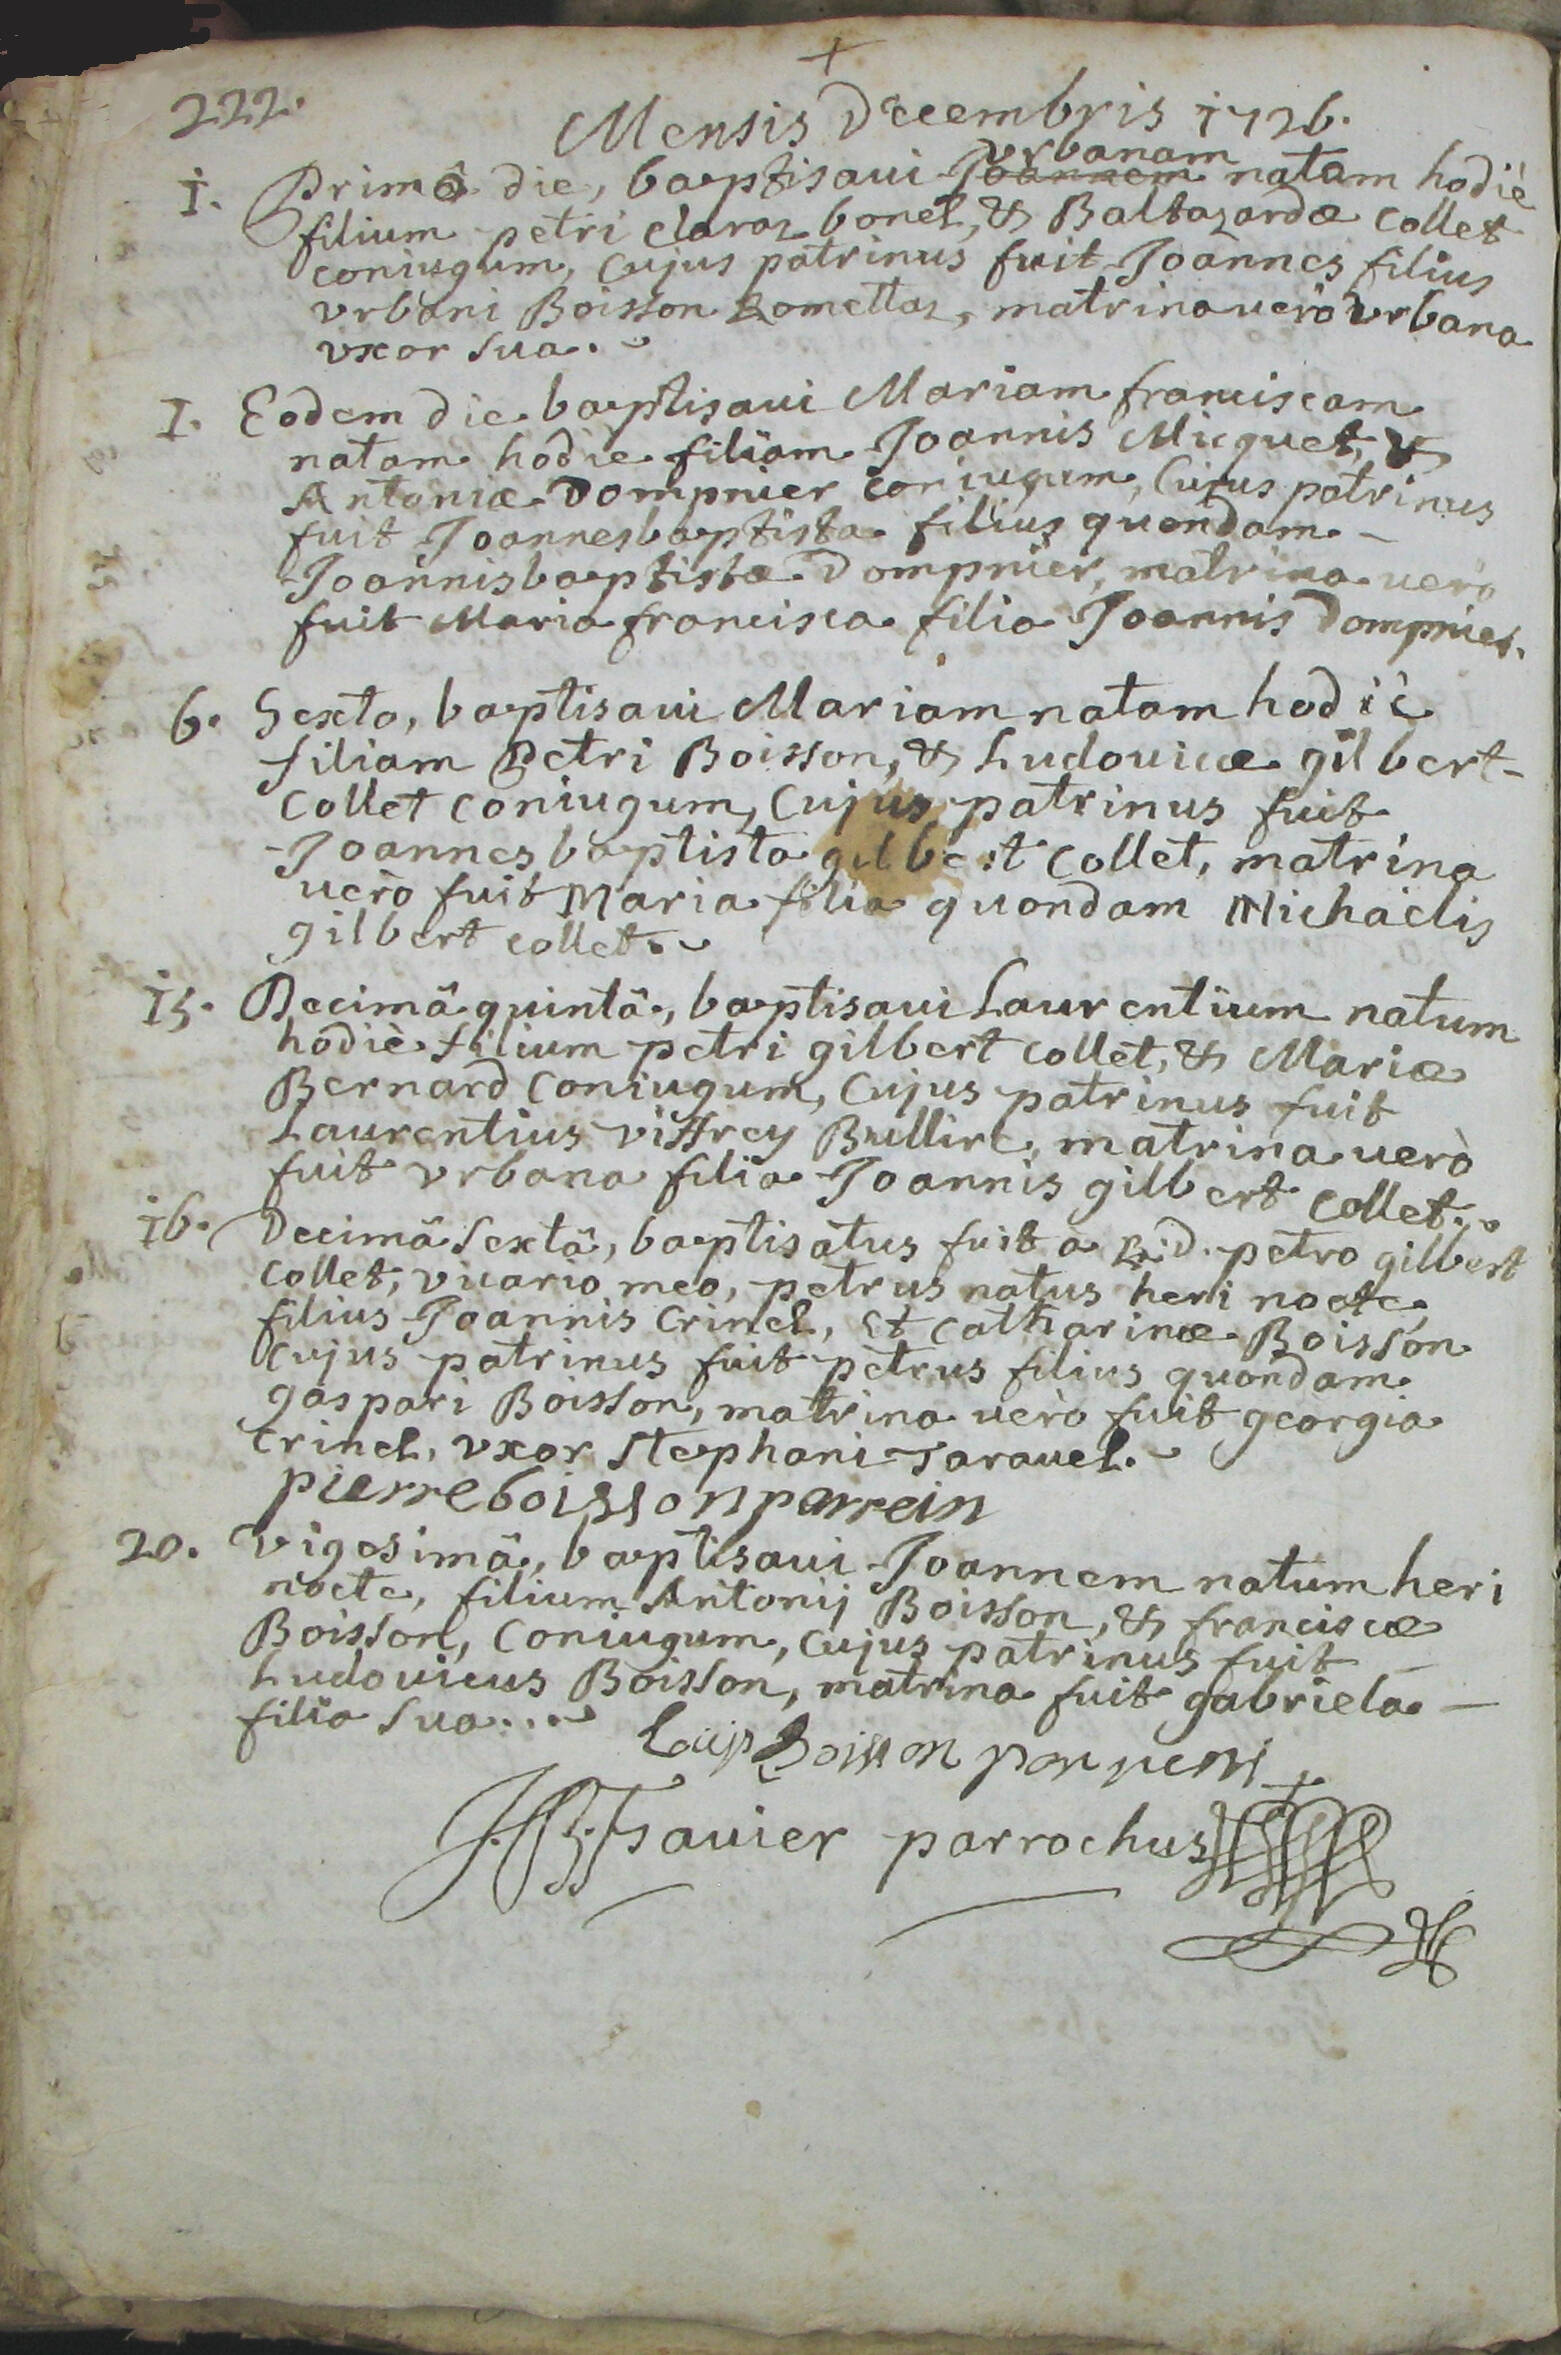 222.
Mensis Decembris 1726.
1. Primâ die, baptisaui Joannem vrbanam natam hodiè
filium petri claraz bonel, & Baltazardæ Collet
coniugum, Cujus patrinus fuit Joannes filius
vrbani Boisson Romettaz, matrina uerò vrbana
vxor sua.
1. Eodem die baptisaui Mariam franciscam
natam hodie filiam Joannis Micquet, &
Antoniæ Dompnier coniugum, Cujus patrinus
fuit Joannesbaptista filius quondam
Joannisbaptistæ Dompnier, matrina uerò
fuit Maria francisca filia Joannis Dompnier.
6. Sexta, baptisaui Mariam natam hodiè
filiam Petri Boisson, & Ludouicæ gilbert
Collet coniugum, Cujus patrinus fuit
Joannesbaptista gilbert Collet, matrina
uerò fuit Maria filia quondam Michaelis
gilbert collet.
15. Decimâ quintâ, baptisaui Laurentium natum
hodiè filium petri gilbert collet, & Mariæ
Bernard Coniugum, Cujus patrinus fuit
Laurentius viffrey Brullire, matrina uerò
fuit vrbana filia Joannis gilbert Collet.
16. Decimâ sextâ, baptisatus fuit a R.D. petro gilbert
Collet, vicario meo, petrus natus heri nocte,
filius Joannis Crinel, et catharinæ Boisson
Cujus patrinus fuit petrus filius quondam
gaspari Boisson, matrina uerò fuit georgia
Crinel, vxor Stephani Tarauel.
pierre boisson parrein
20. Vigesimâ, baptisaui Joannem natum heri
nocte, filium Antonij Boisson, & franciscæ
Boisson, Coniugum, Cujus patrinus fuit
Ludouicus Boisson, matrina fuit gabriela
filia sua...
Boisson
parrochus